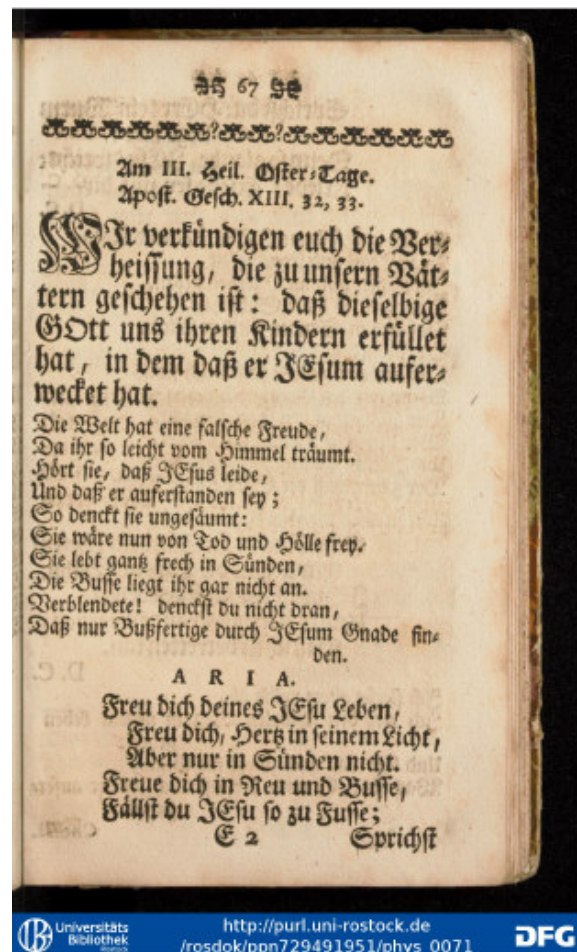 67
Am III. Heil. Oster-Tage.
Apost. Gesch. XIII. 32, 33.
WIr verkündigen euch die Ver-
heissung, die zu unsern Vät-
tern geschehen ist: daß dieselbige
GOtt uns ihren Kindern erfüllet
hat, in dem daß er JEsum aufer-
wecket hat.
Die Welt hat eine falsche Freude,
Da ihr so leicht vom Himmel träumt.
Hört sie, daß JEsus leide,
Und daß er auferstanden sey;
So denckt sie ungesäumt:
Sie wäre nun von Tod und Hölle frey.
Sie lebt gantz frech in Sünden,
Die Busse liegt ihr gar nicht an.
Verblendete! denckst du nicht dran,
Daß nur Bußfertige durch JEsum Gnade fin-
den.
ARIA.
Freu dich deines JEsu Leben,
Freu dich, Hertz in seinem Licht,
Aber nur in Sünden nicht.
Freue dich in Reu und Busse,
Fällst du JEsu so zu Fusse;
E 2 Sprichst
Universitäts Bibliothek Rostock
http://purl.uni-rostock.de
/rosdok/ppn729491951/phys_0071
DFG